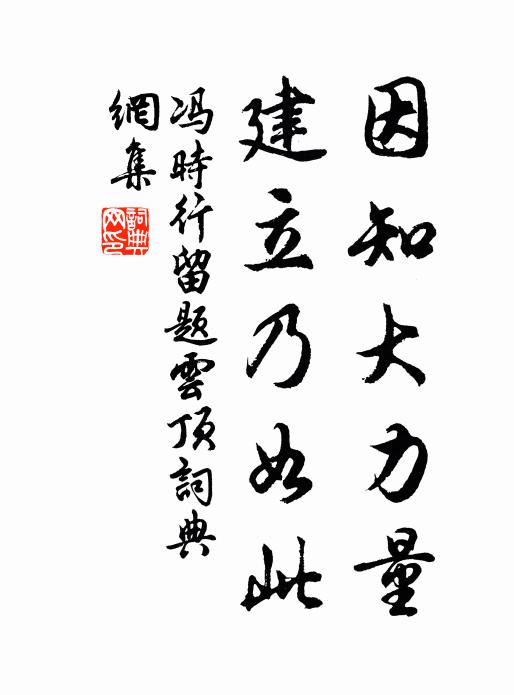 因知大力量
建立乃如此
冯時行留题雲顶詞典
網集
詞典
网印